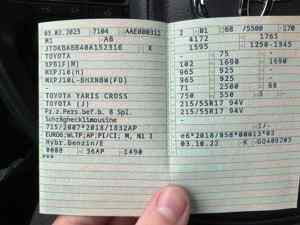 03.02.2023 7104 AAE000312
M1 AB
JTDKBABB40A152316 X
TOYOTA
XPB1F(M)
MXPJ10(H)
MXPJ10L-BHXNBW(FD)
TOYOTA YARIS CROSS
TOYOTA (J)
Fz.z.Pers.bef.b. 8 Spl.
Schräghecklimousine
715/2007*2018/1832AP
EURO6;WLTP;AP;PI/CI; M, N1 I
Hybr.Benzin/E
0008 36AP 1490
2 01 68 /5500 170
4172 1765
1595 1250-1945
- 75 -
102 1690 1690
965 925 -
965 925 -
71 2500 68
750 550 3
215/55R17 94V
215/55R17 94V
-/-
e6*2018/858*00013*03
03.10.22 K GQ409203